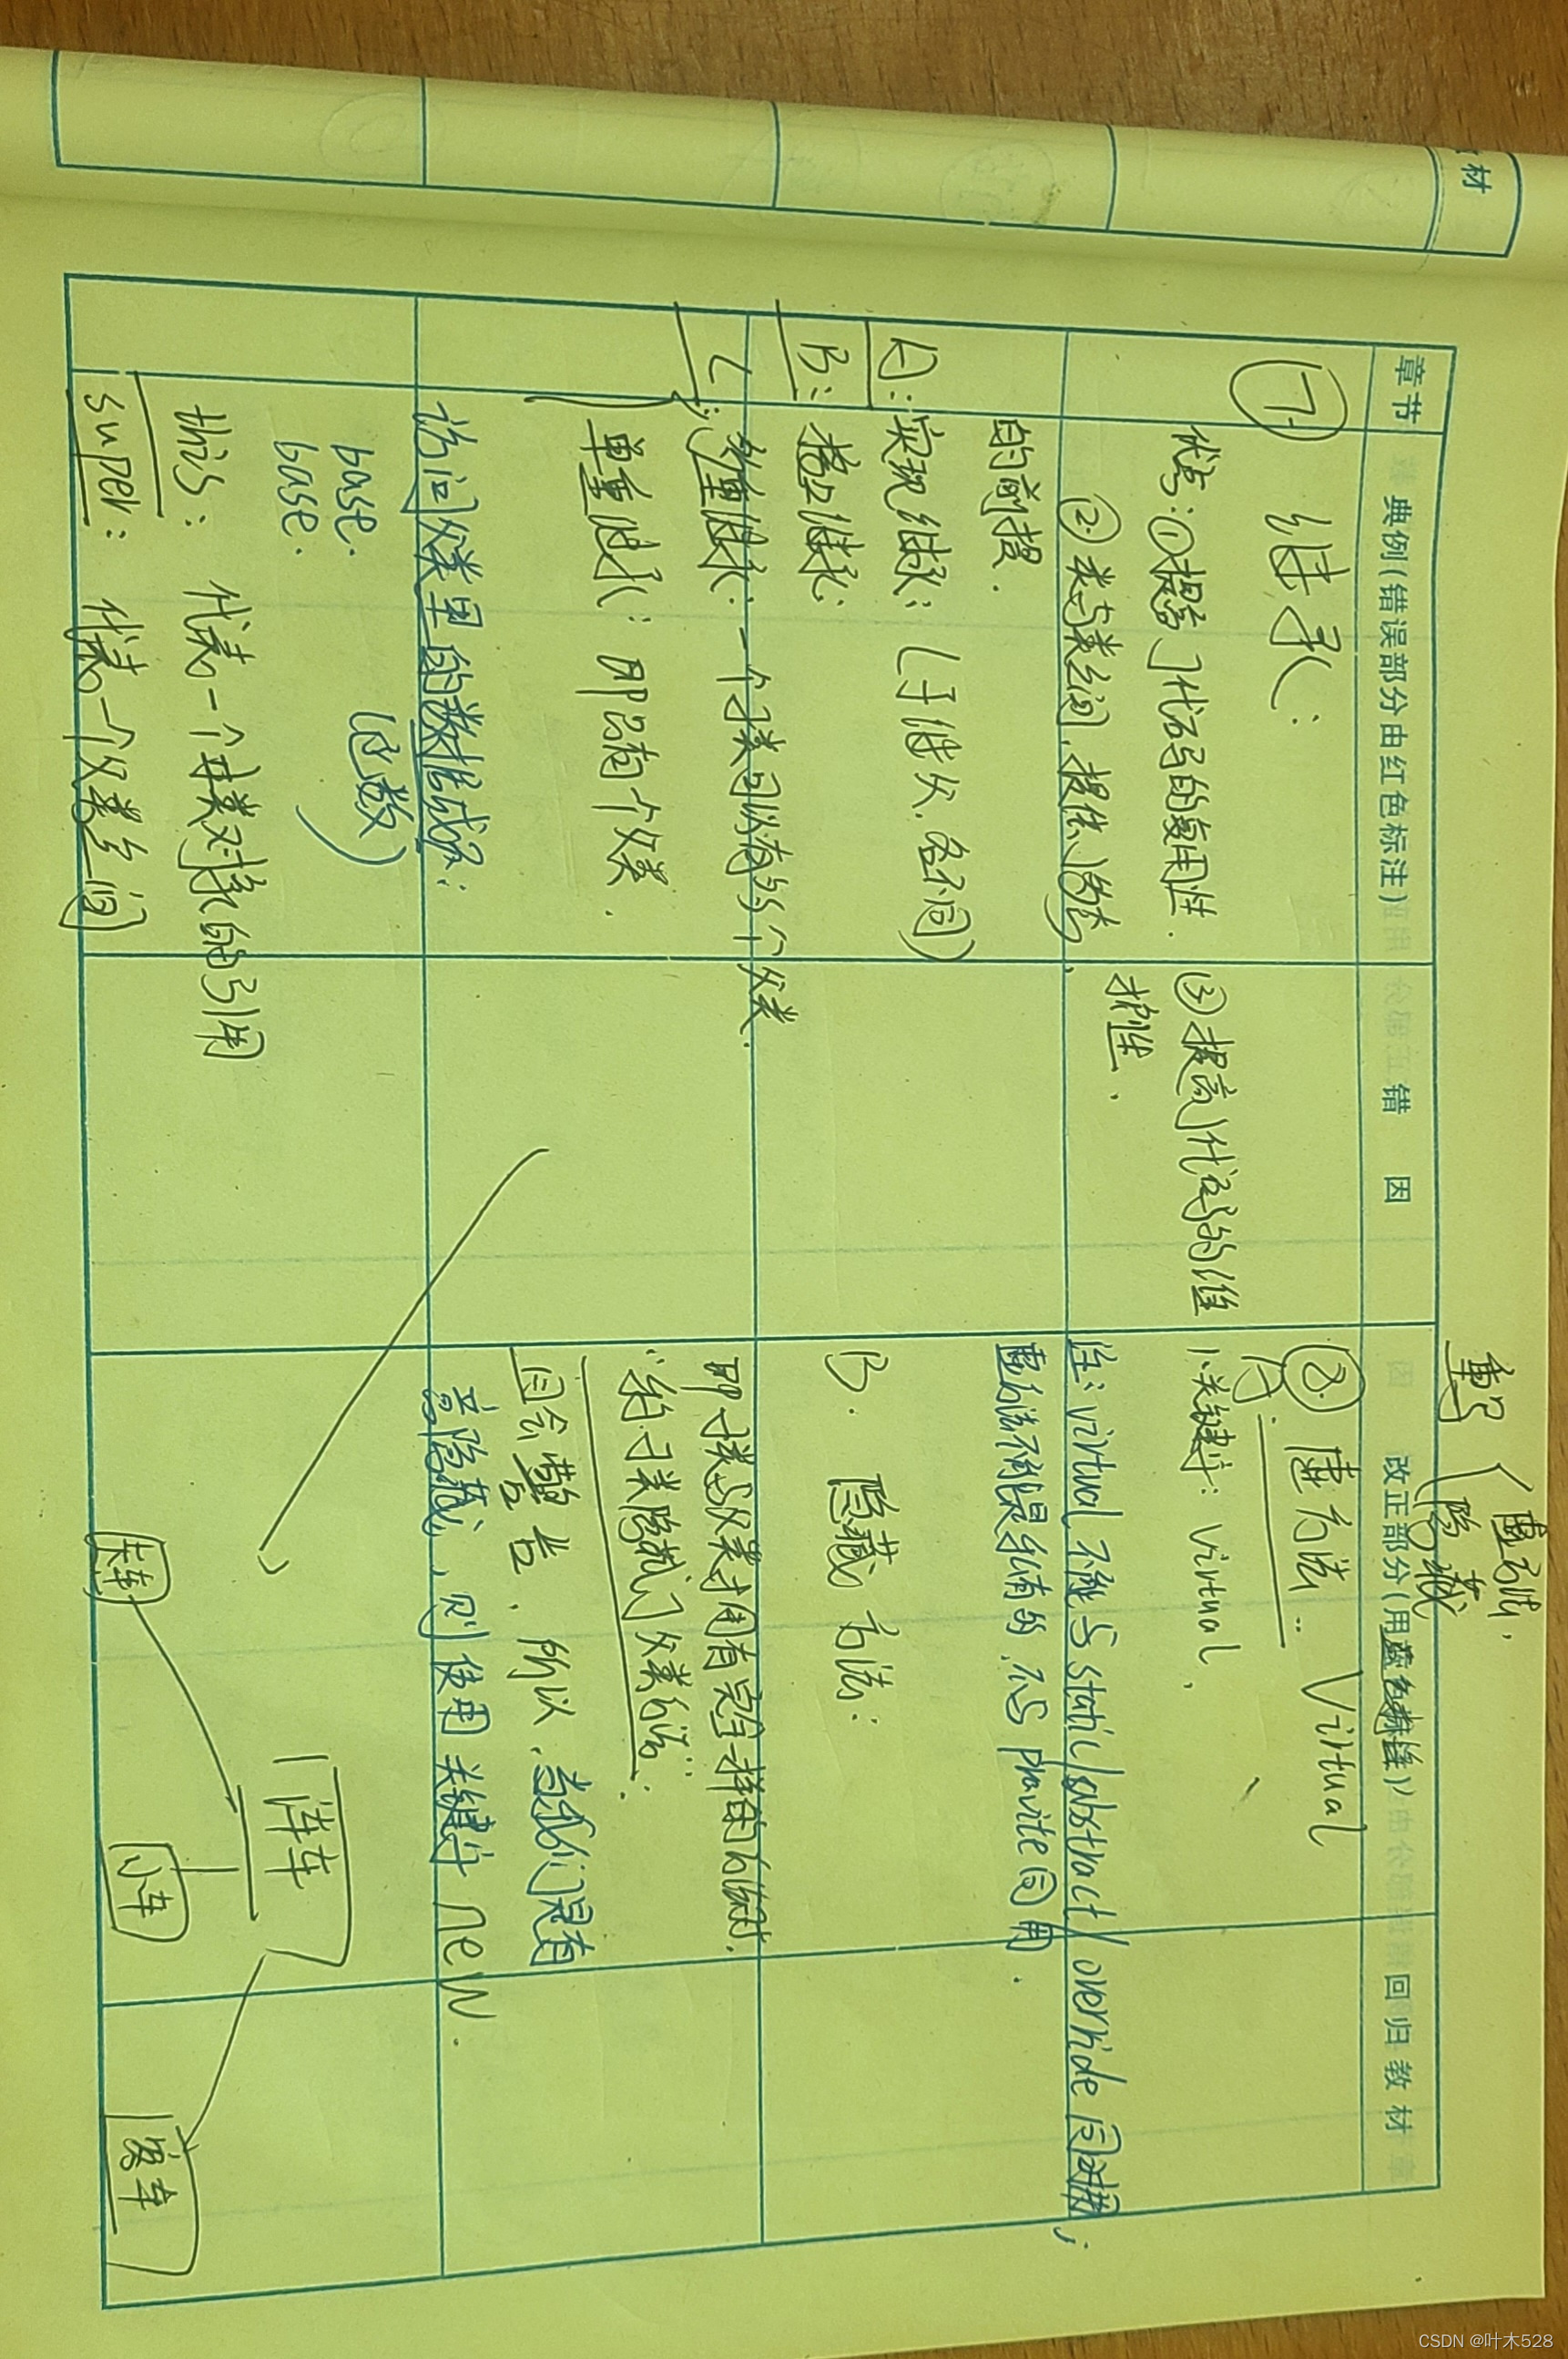 材
章节
典例(错误部分由红色标注)
错 因
改正部分(用蓝色标注)
回归教材
⑦
继承:
优点:①提高了代码的复用性.
②类与类之间,提供
的前提.
③提高代码的维
护性.
A:实现继承:(子继父.各不同)
B:接口继承:
C:多重继承:一个子类可以有多个父类.
单重继承:即只有一个父类.
访问父类里的数据成员:
base.
base.
(函数)
this: 代表一个本类对象的引用
super: 代表一个父类空间
重写
虚方法.
隐藏
⑧ 虚方法: Virtual
1、关键字: Virtual.
注:virtual 不能与static/abstract/override同时用;
虚方法不能是私有的,不与pravite同用.
B. 隐藏方法:
即子类与父类拥有完全一样的方法时.
"称子类隐藏了父类方法":
但会警告.所以.当我们是有
意隐藏,则使用关键字new.
汽车
卡车
小车
客车
CSDN @叶木528